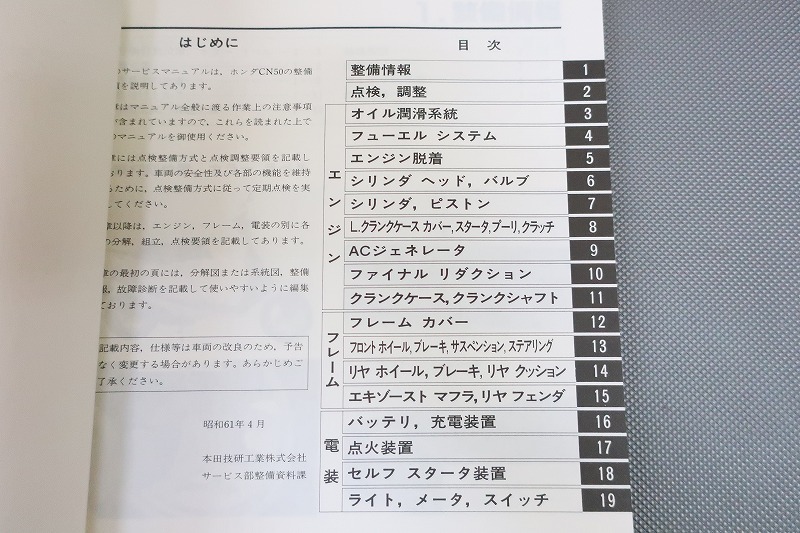 はじめに
のサービスマニュアルは，ホンダCN50の整備
を説明してあります。
はマニュアル全般に渡る作業上の注意事項
が含まれていますので，これらを読まれた上で
のマニュアルを御使用ください。
には点検整備方式と点検調整要領を記載し
おります。車両の安全性及び各部の機能を維持
るために，点検整備方式に従って定期点検を実
してください。
以降は，エンジン，フレーム，電装の別に各
の分解，組立，点検要領を記載してあります。
の最初の頁には，分解図または系統図，整備
，故障診断を記載して使いやすいように編集
ております。
記載内容，仕様等は車両の改良のため，予告
なく変更する場合があります。あらかじめご
了承ください。
昭和61年4月
本田技研工業株式会社
サービス部整備資料課
目 次
整備情報 1
点検，調整 2
エンジン
オイル潤滑系統 3
フューエル システム 4
エンジン脱着 5
シリンダ ヘッド，バルブ 6
シリンダ，ピストン 7
L.クランクケース カバー，スタータ，プーリ，クラッチ 8
ACジェネレータ 9
ファイナル リダクション 10
クランクケース，クランクシャフト 11
フレーム
フレーム カバー 12
フロント ホイール，ブレーキ，サスペンション，ステアリング 13
リヤ ホイール，ブレーキ，リヤ クッション 14
エキゾースト マフラ，リヤ フェンダ 15
電装
バッテリ，充電装置 16
点火装置 17
セルフ スタータ装置 18
ライト，メータ，スイッチ 19